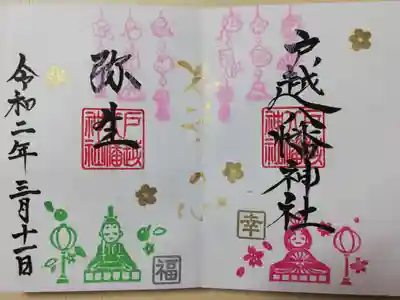 戸越八幡神社
戸越八幡神社
幸
弥生
戸越八幡神社
令和二年三月十一日
福